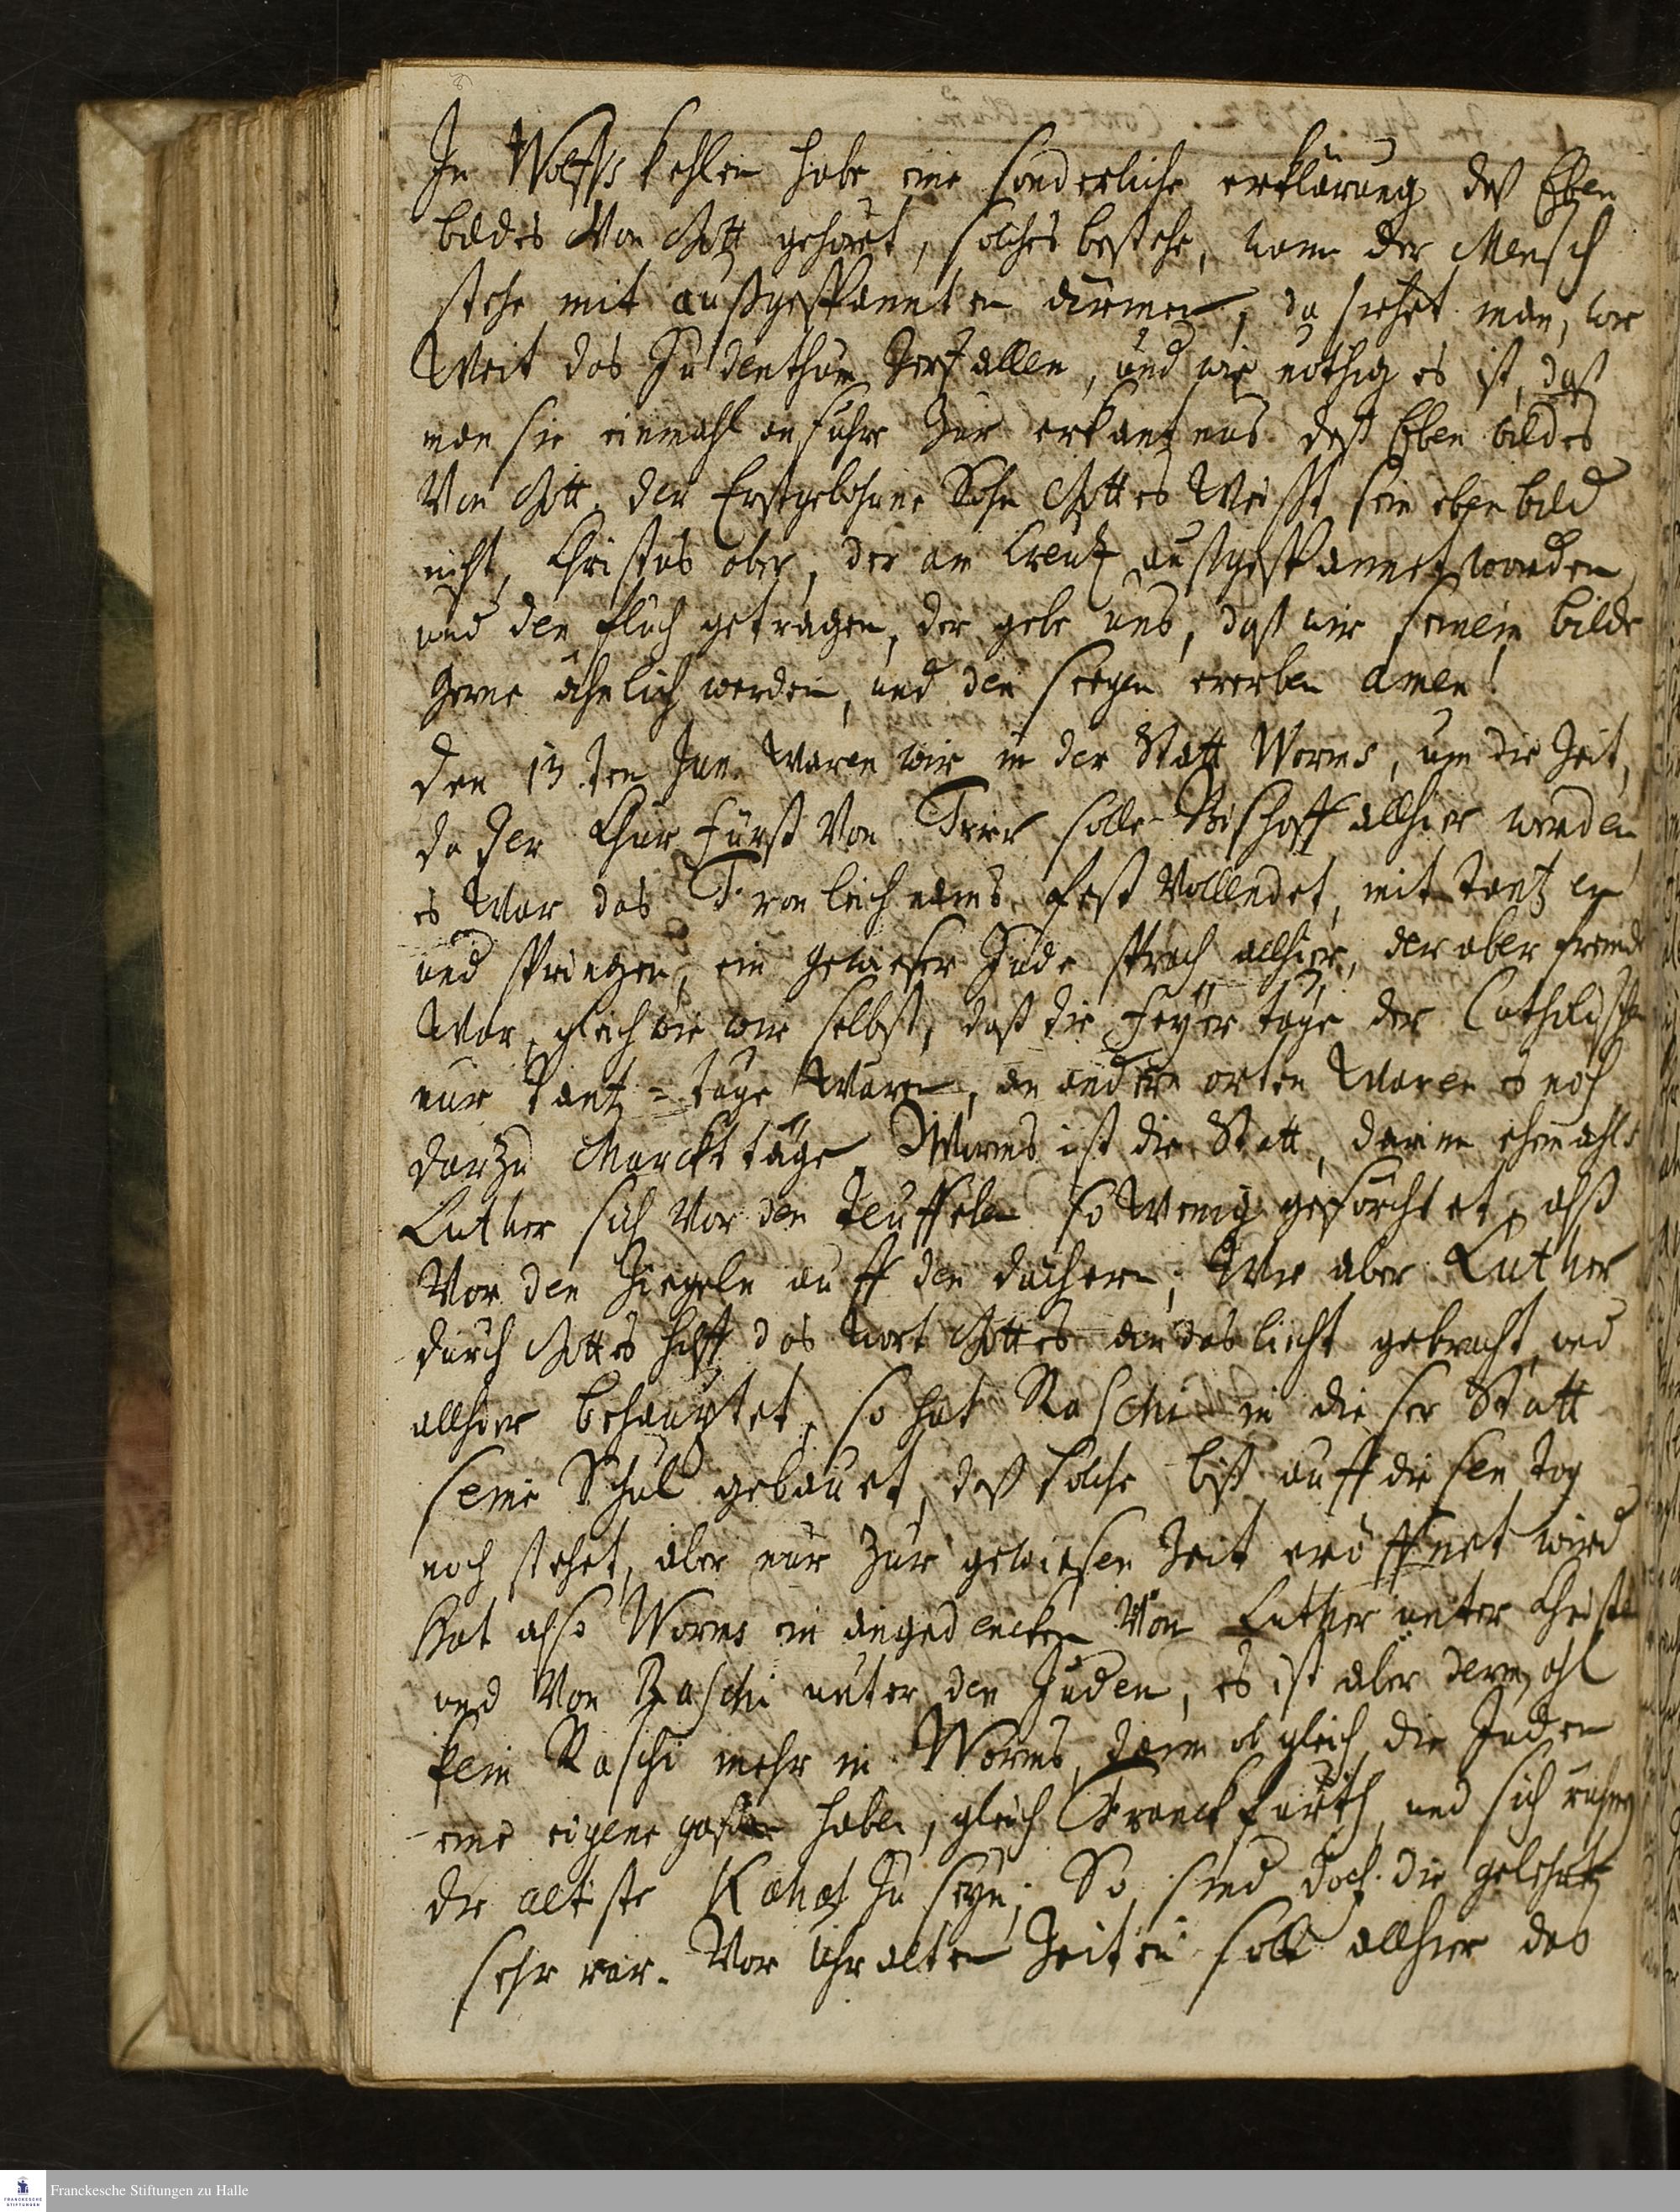 In Wolffskehlen habe eine sonderliche erklärung deß Eben
bildes Von Gott gehöret, solches bestehe, wann der Mensch
stehe mit außgespannten ärmen, da siehet man, wie
Weit das Judenthum Verfallen, und wie nöthig es ist, daß
man sie einmahl anführe zur erkantnus deß Eben bildes
Von Gott. der Erstgebohrne Sohn Gottes Weist sein ebenbild
nicht, Christus aber, der am Creutz außgespannet worden
und den fluch getragen, der gebe uns, daß wir seinem bilde
gerne ähnlich werden, und den Seegen ererben amen!
den 13.ten Jun. Waren wir in der Statt Worms, um die Zeit,
da der Chur Fürst Von Trier solle Bischoff allhier werden
es War das Fronleichnams fest Vollendet, mit tantzen
und springen, ein gewieser Jude sprach allhier, der aber fremd
War, gleich wie wir selbst, daß die Feyer tage der Catholischen
nur Tantz-tage Waren, an andern orten Waren es noch
darzu Marckttäge. Worms ist die Statt, darinn ehemahls
Luther sich Vor den Teuffelen so Wenig geförchtet, alß
Vor den Ziegeln auff den dächern; Wie aber Luther
durch Gottes hilff das Wort Gottes an das licht gebracht, und
allhier behauptet, so hat Raschi in dieser Statt
seine Schul gebauet, daß solche biß auff diesen tag
noch stehet, aber nur zur gewiesen Zeit eröffnet wird
Hat also Worms ein angedencken Von Luther unter Christen
und Von Raschi unter den Juden, es ist aber dermahl
kein Raschi mehr in Worms, dann obgleich die Juden
eine eigene gaße haben, gleich Franckfurth, und sich rühmen
die älteste Kahal zu seyn; So sind doch die gelehrte
sehr rar. Vor Uhralten Zeiten soll allhier das
Franckesche Stiftungen zu Halle
FRANCKESCHE
STIFTUNGEN